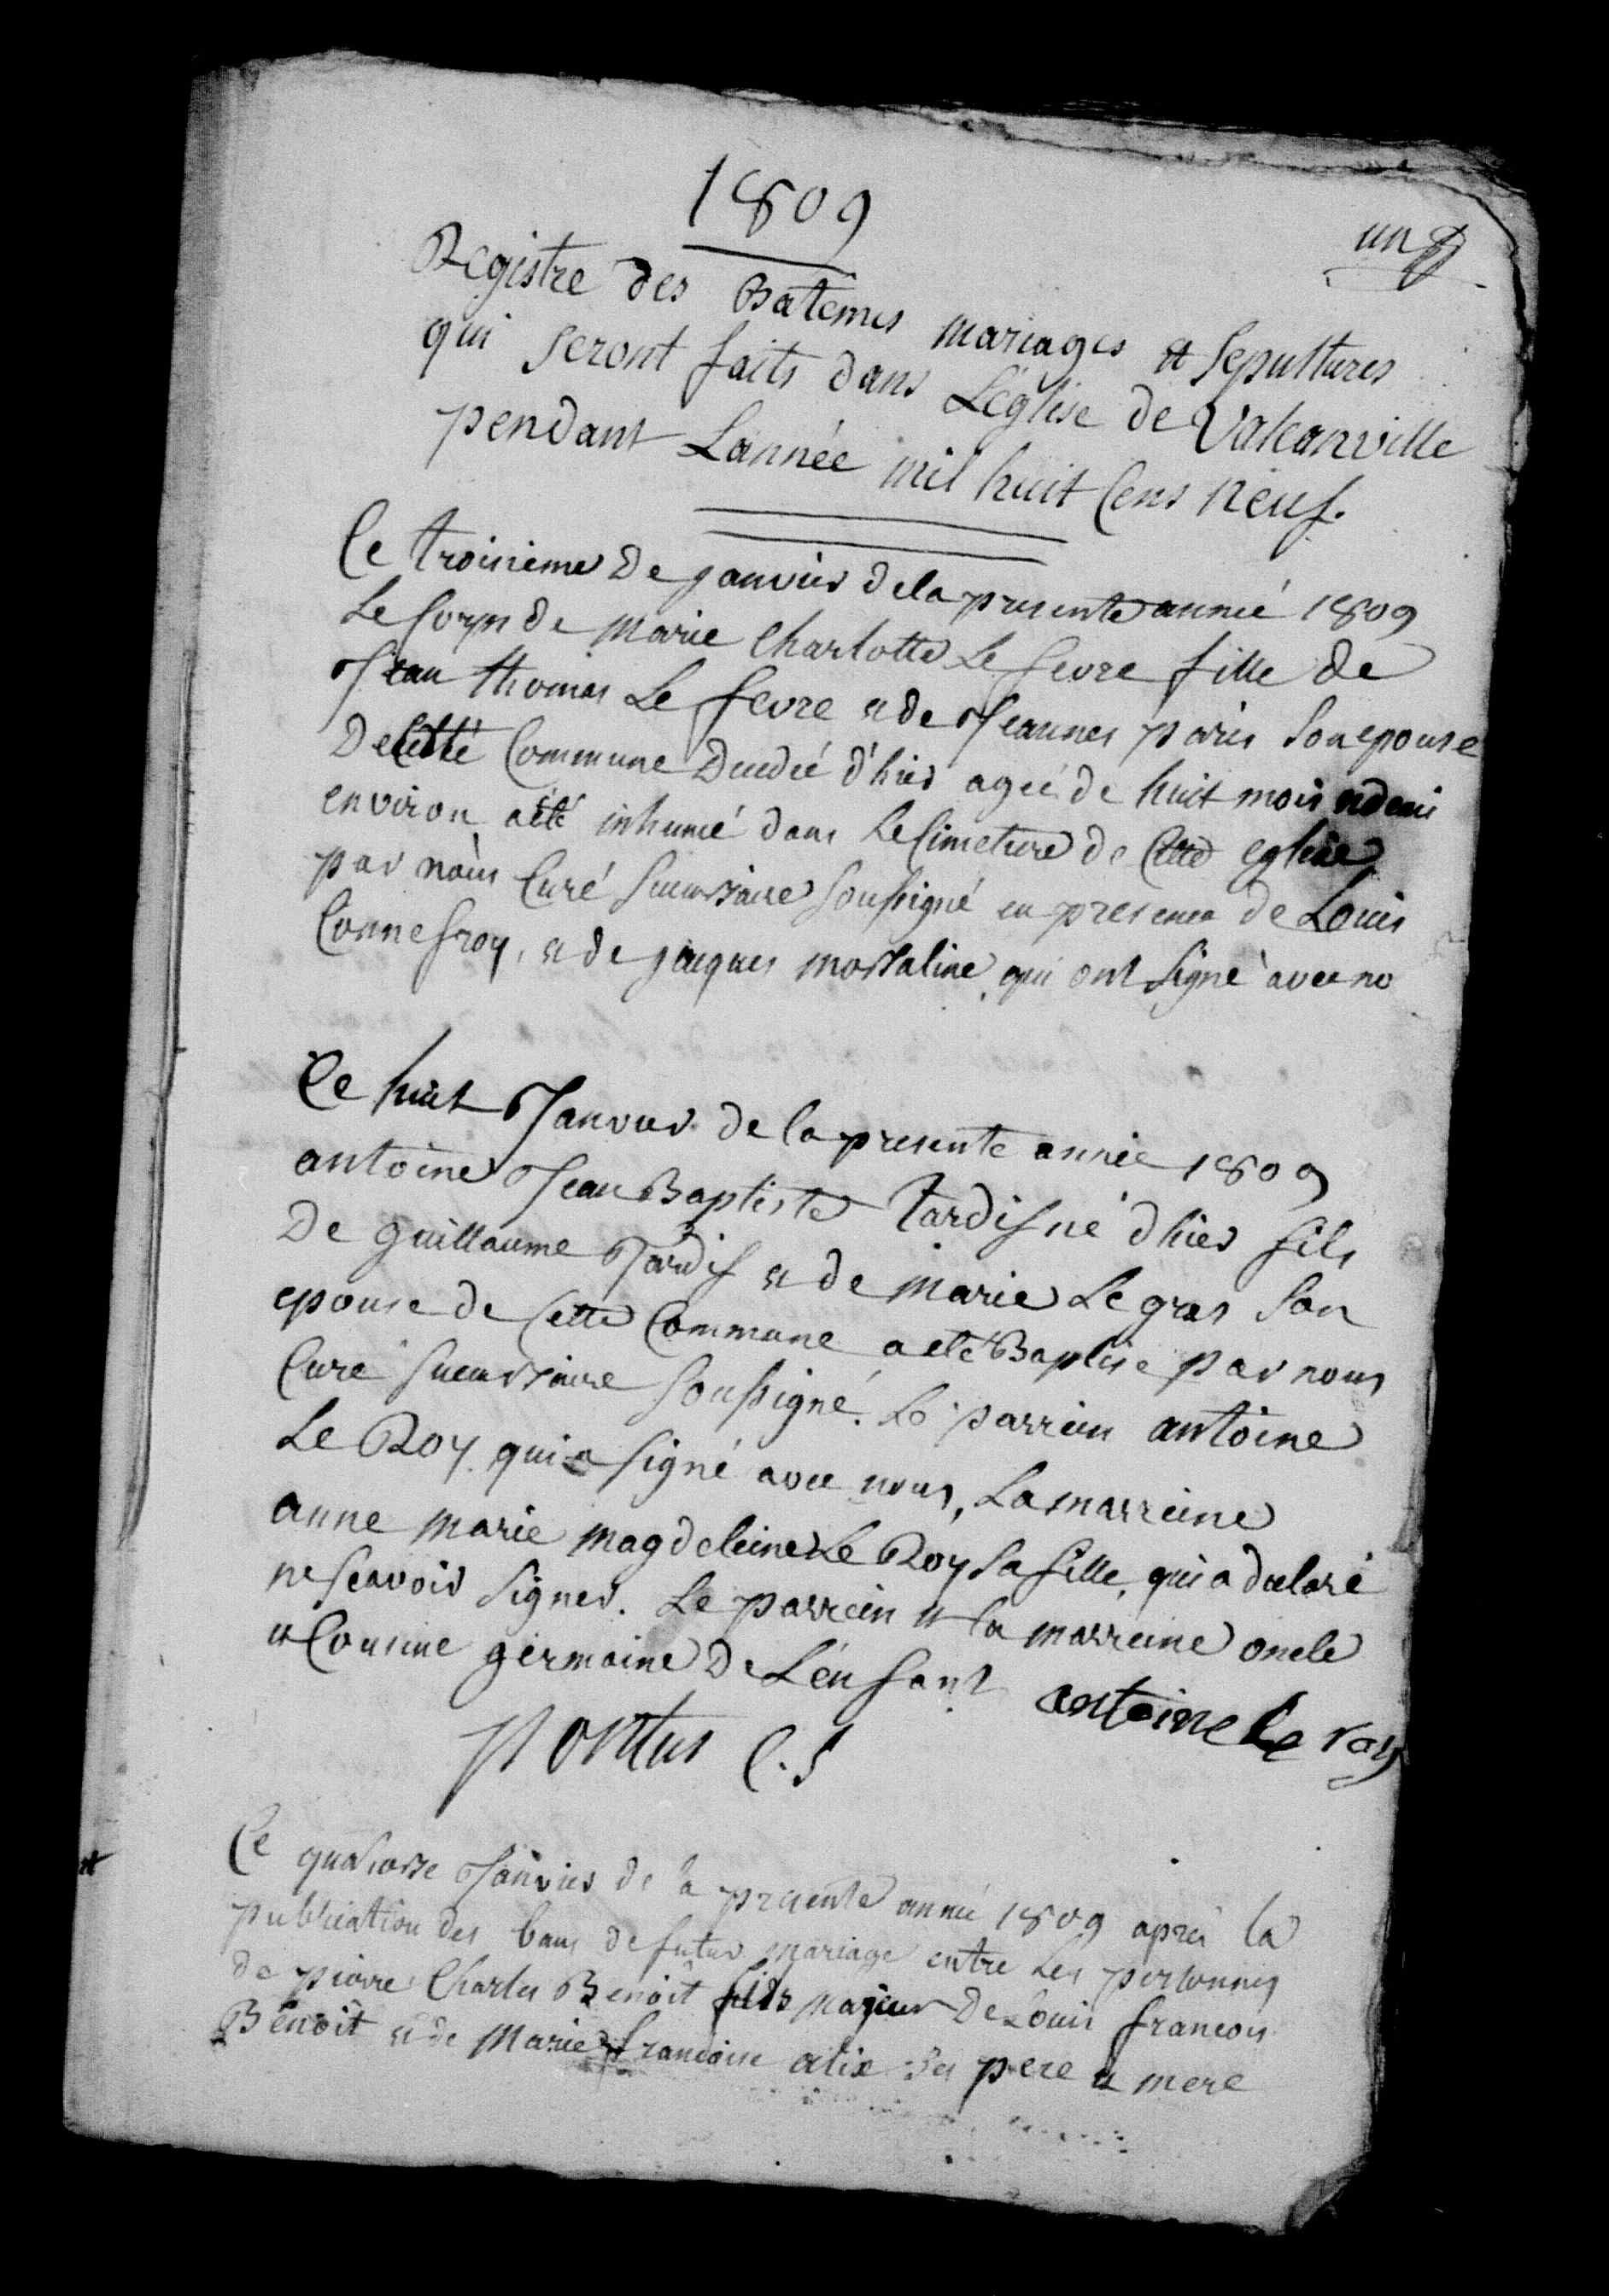 1809
un
Registre des Batemes mariages et Sepultures
qui seront faits dans L'église de Valcanville
pendant L'année mil huit Cens neuf.
Ce troisieme de janvier de la presente année 1809
Le Corps de marie Charlotte Le fevre fille de
Jean thomas Le fevre et de Jeannes paris Son epouse
De Cette Commune Decedée d'hier agée de huit mois et demi
environ a été inhumé dans Le Cimetiere de Cette eglise
par nous Curé succursaire soussigné en presence de Louis
Connefroy, et de jacques mossaline qui ont signé avec no
Ce huit Janvier de la presente année 1809
antoine Jean Baptiste Tardif né d'hier fils
De guillaume Tardif et de marie Le gras son
epouse de Cette Commune a eté Baptisé par nous
Curé succursaire soussigné. Le parrein antoine
Le Roy qui a signé avec nous, La marreine
anne marie magdeleine Le Roy sa fille, qui a declaré
ne scavoir signer. Le parrein et la marreine oncle
et Cousine germaine De L'enfant antoine Le roy
Pontus C.S
Ce quatorze Janvier de la presente année 1809 après la
publication des bans de futur mariage entre Les personnes
de pierre Charles Benoît fils majeur De Louis francois
Benoît et de Marie francoise alix ses pere et mere